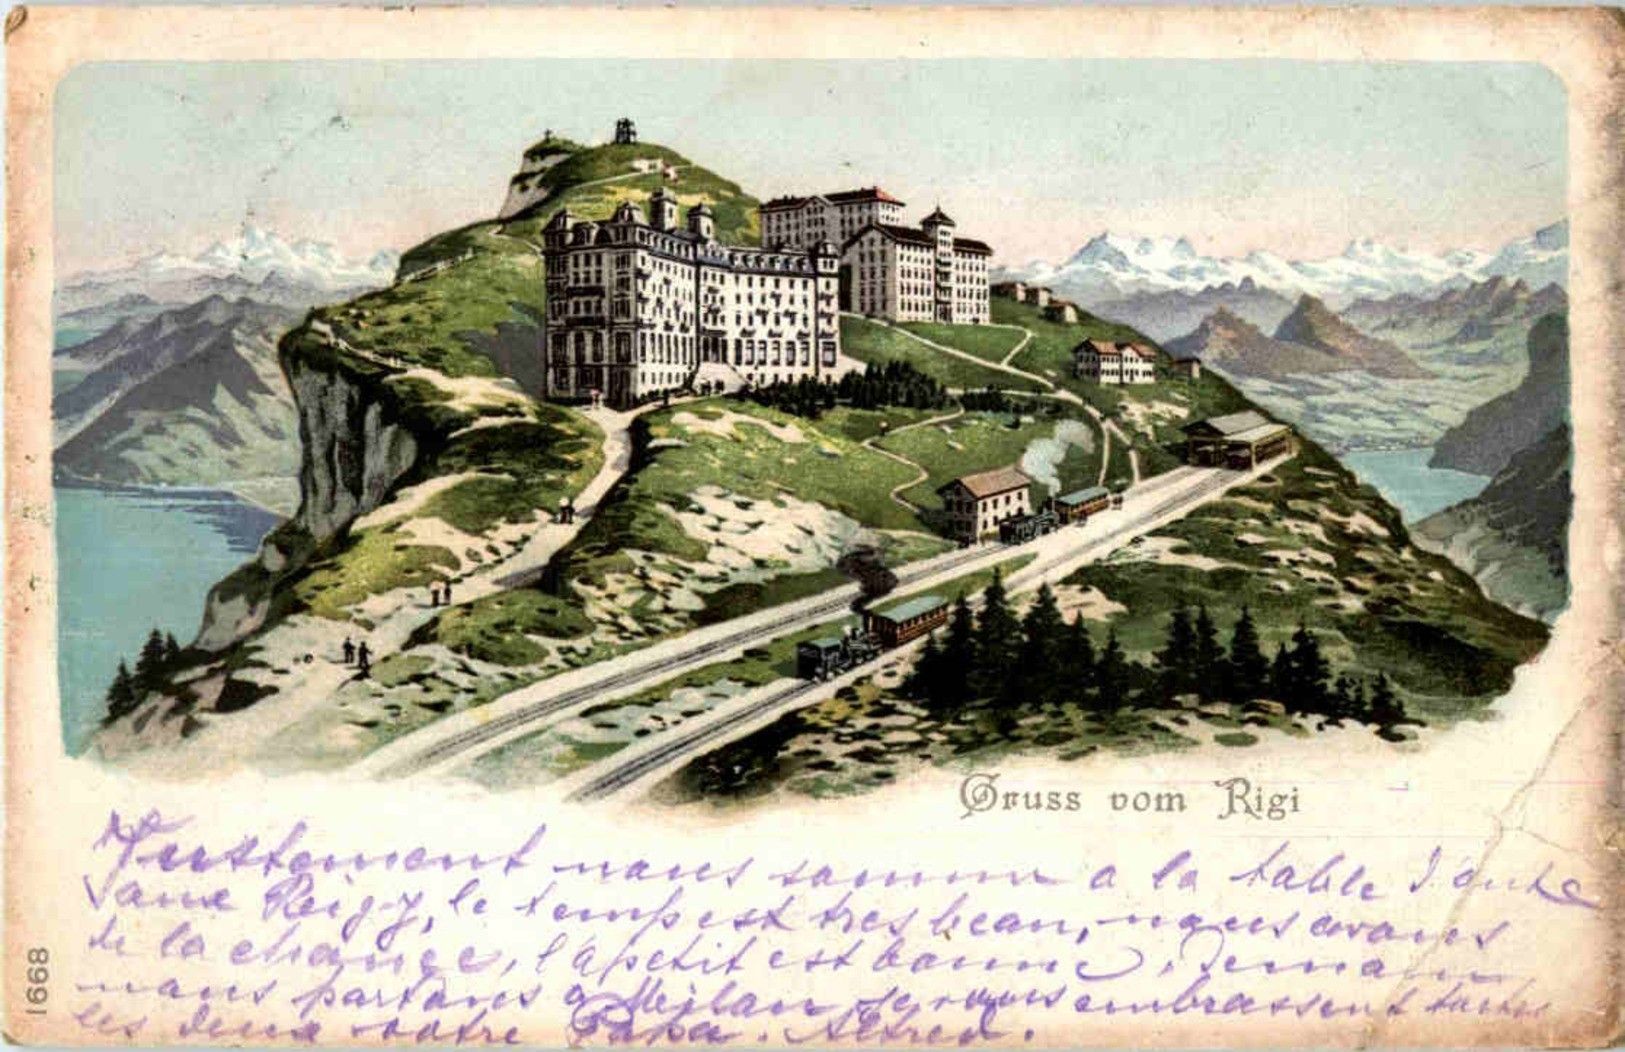 Gruss vom Rigi
Justement nous somme a la table d'ote
le temp est tres beau, nous avons
de la change, l'apetit est bonne, demain
nous partons a Meilan je vous embrassent toutes
les deux votre Papa. Alfred.
1668